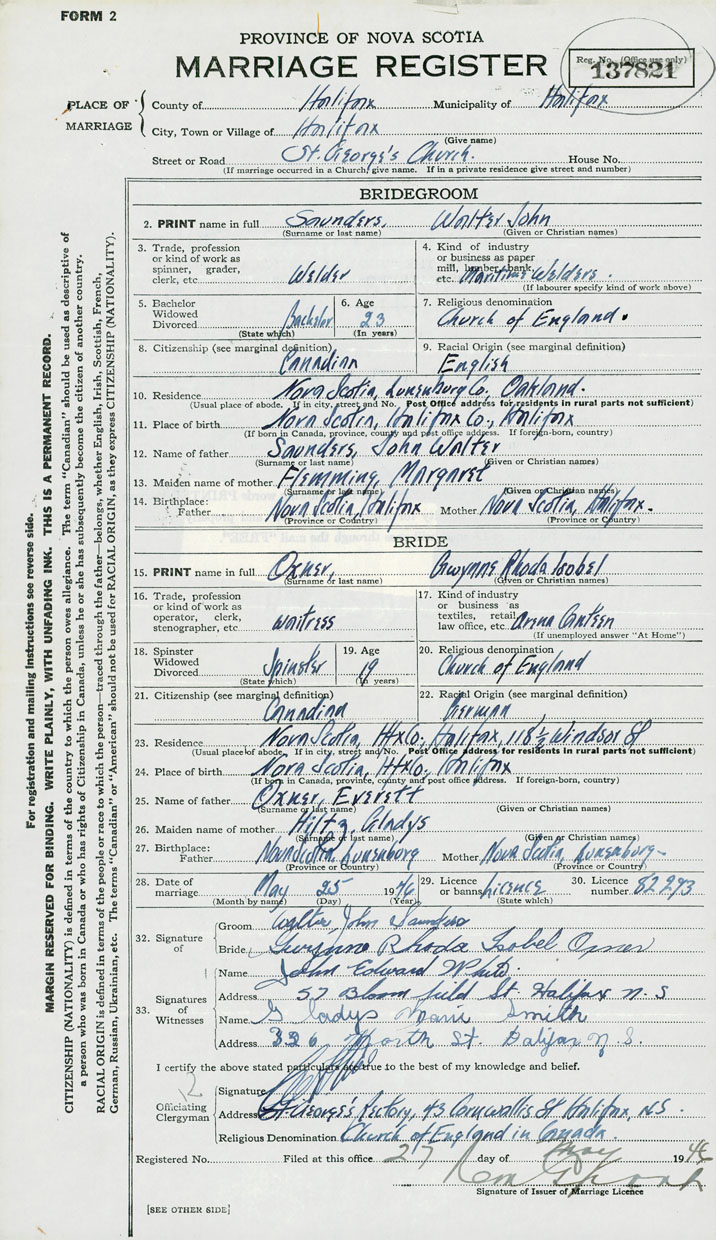 FORM 2
PROVINCE OF NOVA SCOTIA
MARRIAGE REGISTER
Reg. No. (Office use only)
137821
PLACE OF MARRIAGE
County of Halifax Municipality of Halifax
City, Town or Village of Halifax
(Give name)
Street or Road St. George's Church. House No.
(If marriage occurred in a Church, give name. If in a private residence give street and number)
BRIDEGROOM
2. PRINT name in full Saunders, Walter John
(Surname or last name) (Given or Christian names)
3. Trade, profession or kind of work as spinner, grader, clerk, etc. Welder
4. Kind of industry or business as paper mill, lumber, bank, etc. Maritime Welders.
(If labourer specify kind of work above)
5. Bachelor Widowed Divorced Bachelor
(State which)
6. Age 23
(In years)
7. Religious denomination
Church of England.
8. Citizenship (see marginal definition)
Canadian
9. Racial Origin (see marginal definition)
English
10. Residence Nova Scotia, Lunenburg Co., Oakland.
(Usual place of abode. If in city, street and No. Post Office address for residents in rural parts not sufficient)
11. Place of birth Nova Scotia, Halifax Co., Halifax
(If born in Canada, province, county and post office address. If foreign-born, country)
12. Name of father Saunders, John Walter
(Surname or last name) (Given or Christian names)
13. Maiden name of mother Flemming, Margaret
(Surname or last name) (Given or Christian names)
14. Birthplace: Father Nova Scotia, Halifax Mother Nova Scotia, Halifax.
(Province or Country) (Province or Country)
BRIDE
15. PRINT name in full Oxner, Gwynne Rhoda Isobel
(Surname or last name) (Given or Christian names)
16. Trade, profession or kind of work as operator, clerk, stenographer, etc. waitress
17. Kind of industry or business as textiles, retail, law office, etc. Arena Canteen
(If unemployed answer "At Home")
18. Spinster Widowed Divorced Spinster
(State which)
19. Age 19
(In years)
20. Religious denomination
Church of England
21. Citizenship (see marginal definition)
Canadian
22. Racial Origin (see marginal definition)
German
23. Residence Nova Scotia, Hfx Co., Halifax, 118½ Windsor St
(Usual place of abode. If in city, street and No. Post Office address for residents in rural parts not sufficient)
24. Place of birth Nova Scotia, Hfx Co., Halifax
(If born in Canada, province, county and post office address. If foreign-born, country)
25. Name of father Oxner, Everett
(Surname or last name) (Given or Christian names)
26. Maiden name of mother Hiltz, Gladys
(Surname or last name) (Given or Christian names)
27. Birthplace: Father Nova Scotia, Lunenburg Mother Nova Scotia, Lunenburg
(Province or Country) (Province or Country)
28. Date of marriage May 25 1946
(Month by name) (Day) (Year)
29. Licence or banns Licence
(State which)
30. Licence number 82293
32. Signature of
Groom Walter John Saunders
Bride Gwynne Rhoda Isobel Oxner
33. Signatures of Witnesses
1 Name John Edward White.
Address 57 Bloomfield St. Halifax N.S
Name Gladys Marie Smith
Address 326 North St. Halifax N.S.
I certify the above stated particulars are true to the best of my knowledge and belief.
2
Officiating Clergyman
Signature
Address St George's Rectory, 43 Cornwallis St Halifax, N.S.
Religious Denomination Church of England in Canada.
Registered No. Filed at this office 27 day of May 1946
Signature of Issuer of Marriage Licence
[SEE OTHER SIDE]
For registration and mailing instructions see reverse side.
MARGIN RESERVED FOR BINDING. WRITE PLAINLY, WITH UNFADING INK. THIS IS A PERMANENT RECORD.
CITIZENSHIP (NATIONALITY) is defined in terms of the country to which the person owes allegiance. The term "Canadian" should be used as descriptive of
a person who was born in Canada or who has rights of Citizenship in Canada, unless he or she has subsequently become the citizen of another country.
RACIAL ORIGIN is defined in terms of the people or race to which the person—traced through the father—belongs, whether English, Irish, Scottish, French,
German, Russian, Ukrainian, etc. The terms "Canadian" or "American" should not be used for RACIAL ORIGIN, as they express CITIZENSHIP (NATIONALITY).